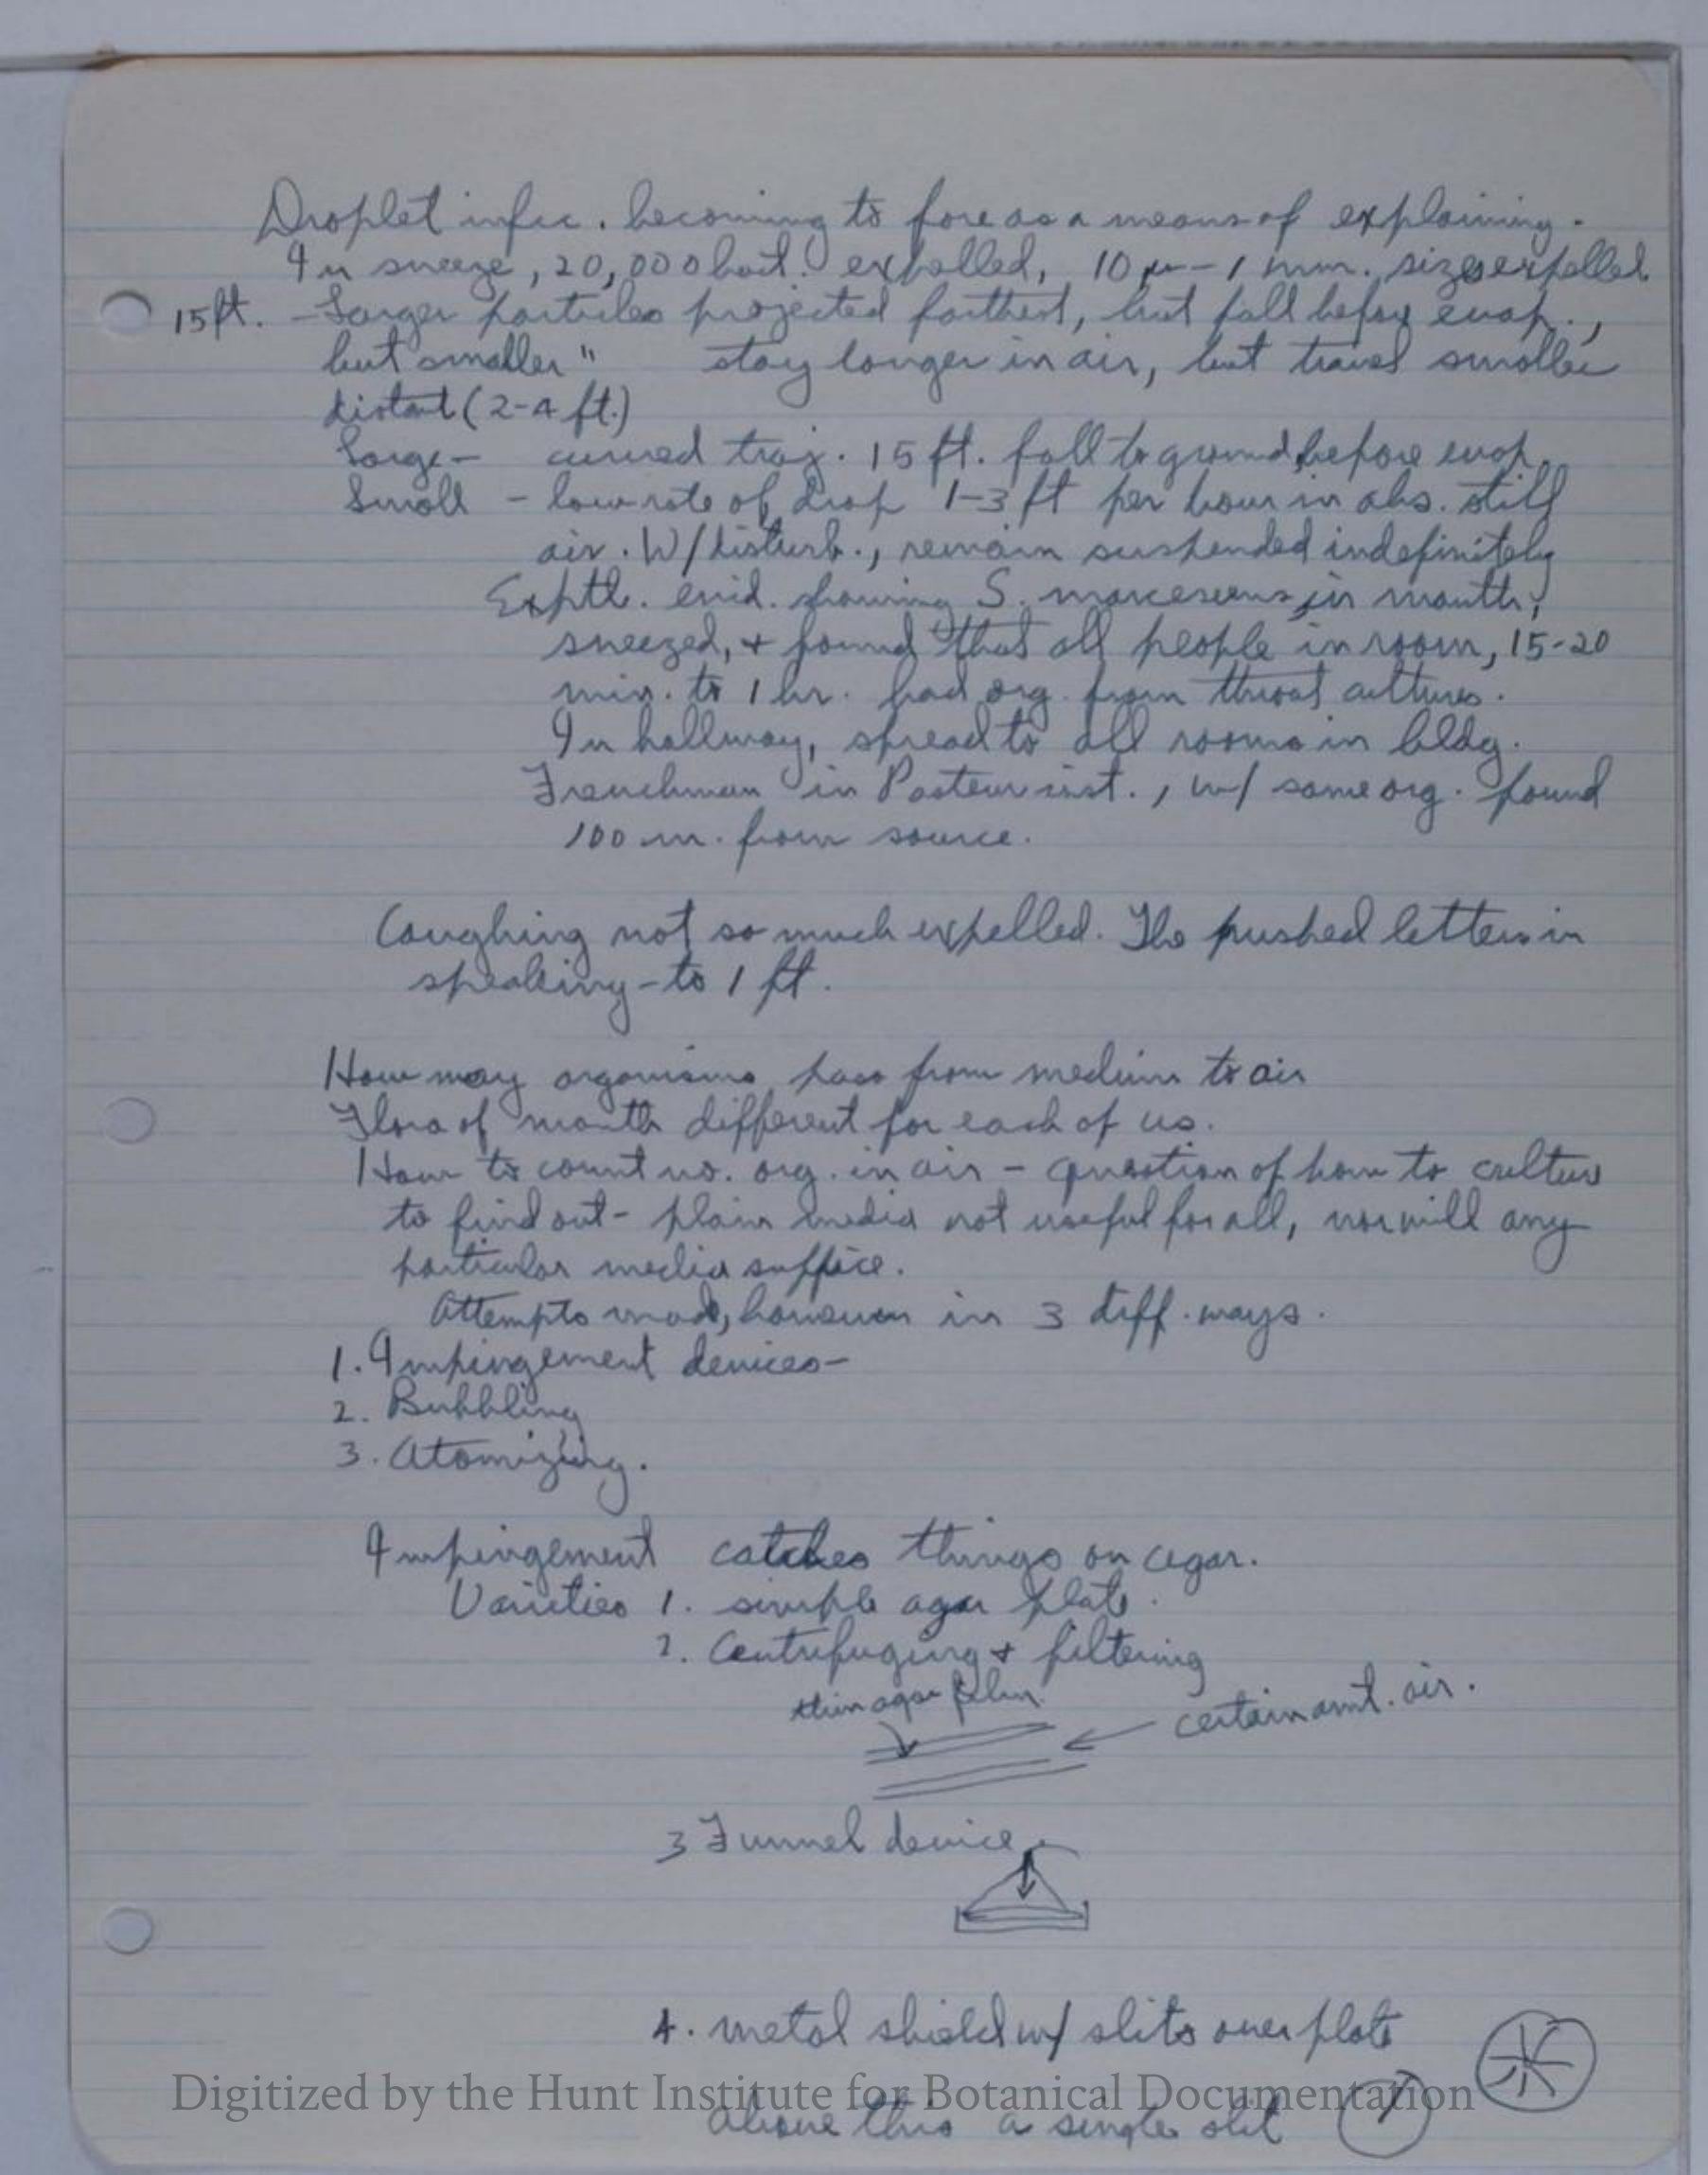 Droplet infec. becoming to fore as a means of explaining.
In sneeze, 20,000 bact. expelled, 10 μ - 1 mm. sizes expelled
15 ft. - Larger particles projected farthest, but fall before evap.,
but smaller " stay longer in air, but travel smaller
distant (2-4 ft.)
Large - curved traj. 15 ft. fall to ground before evap.
Small - low rate of drop 1-3 ft per hour in abs. still
air. W/ disturb., remain suspended indefinitely
Exptl. evid. showing S. marcescens in mouth,
sneezed, + found that all people in room, 15-20
min. to 1 hr. had org. from throat cultures.
In hallway, spread to all rooms in bldg.
Frenchman in Pasteur inst., w/ same org. found
100 m. from source.
Coughing not so much expelled. The pushed letters in
speaking - to 1 ft.
How may organisms pass from medium to air
Flora of mouth different for each of us.
How to count no. org. in air - question of how to culture
to find out - plain media not useful for all, nor will any
particular media suffice.
Attempts made, however in 3 diff. ways.
1. Impingement devices -
2. Bubbling
3. Atomizing.
Impingement catches things on agar.
Varieties 1. simple agar plate.
2. Centrifuging + filtering
thin agar film
certain amt. air.
3 Funnel device
4. metal shield w/ slits over plate
above this a single slit
Digitized by the Hunt Institute for Botanical Documentation